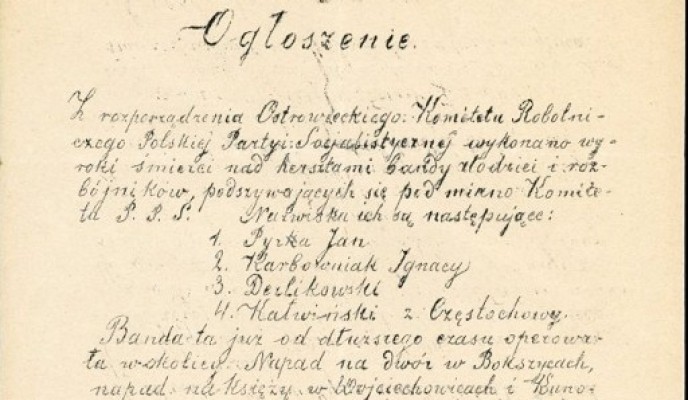 Ogłoszenie.
Z rozporządzenia Ostrowieckiego Komitetu Robotni-
czego Polskiej Partyi Socjalistycznej wykonano wy-
roki śmierci nad hersztami bandy złodziei i roz-
bójników, podszywających się pod miano Komite-
ta P. P. S. Nazwiska ich są następujące:
1. Pyrka Jan
2. Karbowniak Ignacy
3. Derlikowski
4. Kalwiński z Częstochowy.
Banda ta już od dłuższego czasu operowa-
ła w okolicy. Napad na dwór w Bokszycach,
napad na księży w Wojciechowicach i Kuno-